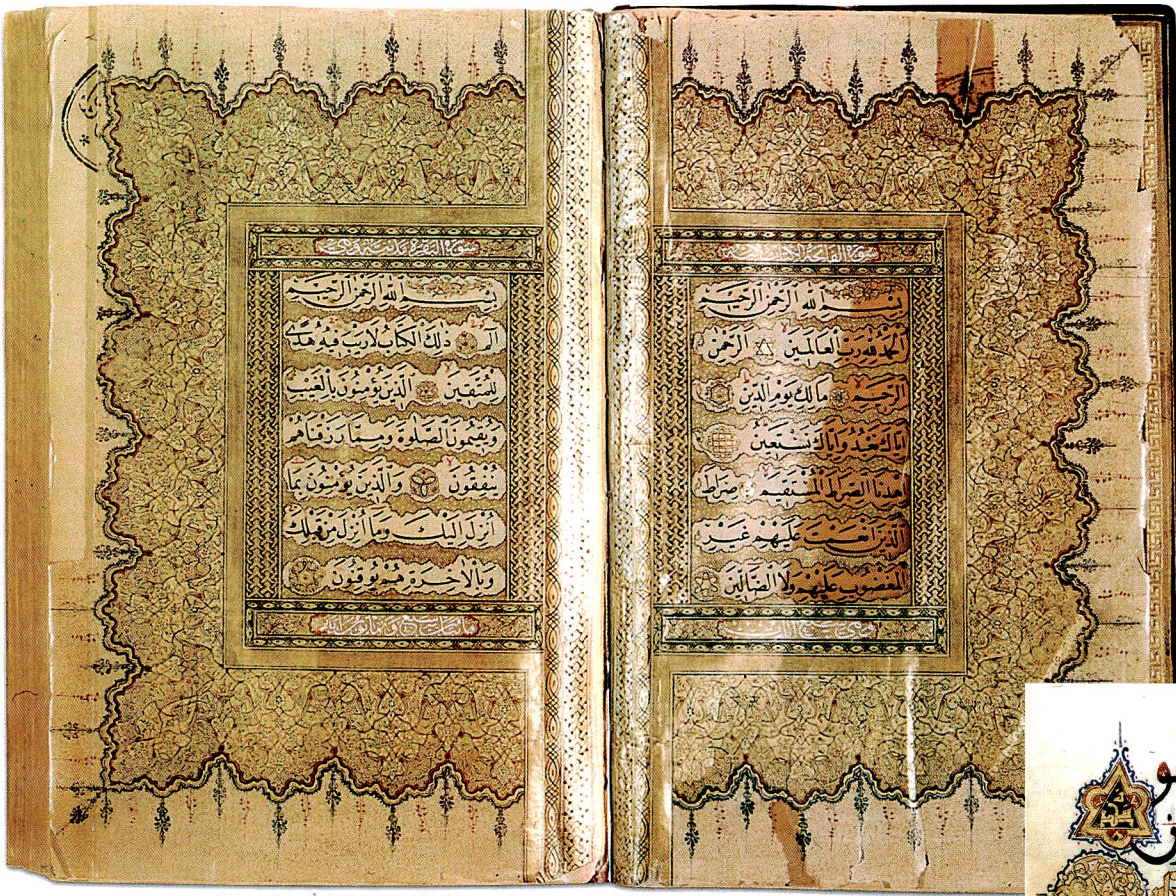 سورة الفاتحة الكتاب
بسم الله الرحمن الرحيم
الحمد لله رب العالمين الرحمن
الرحيم مالك يوم الدين
اياك نعبد واياك نستعين
اهدنا الصراط المستقيم صراط
الذين انعمت عليهم غير
المغضوب عليهم ولا الضالين
سورة البقرة
بسم الله الرحمن الرحيم
الم ذلك الكتاب لا ريب فيه هدى
للمتقين الذين يؤمنون بالغيب
ويقيمون الصلوة ومما رزقناهم
ينفقون والذين يؤمنون بما
انزل اليك وما انزل من قبلك
وبالاخرة هم يوقنون